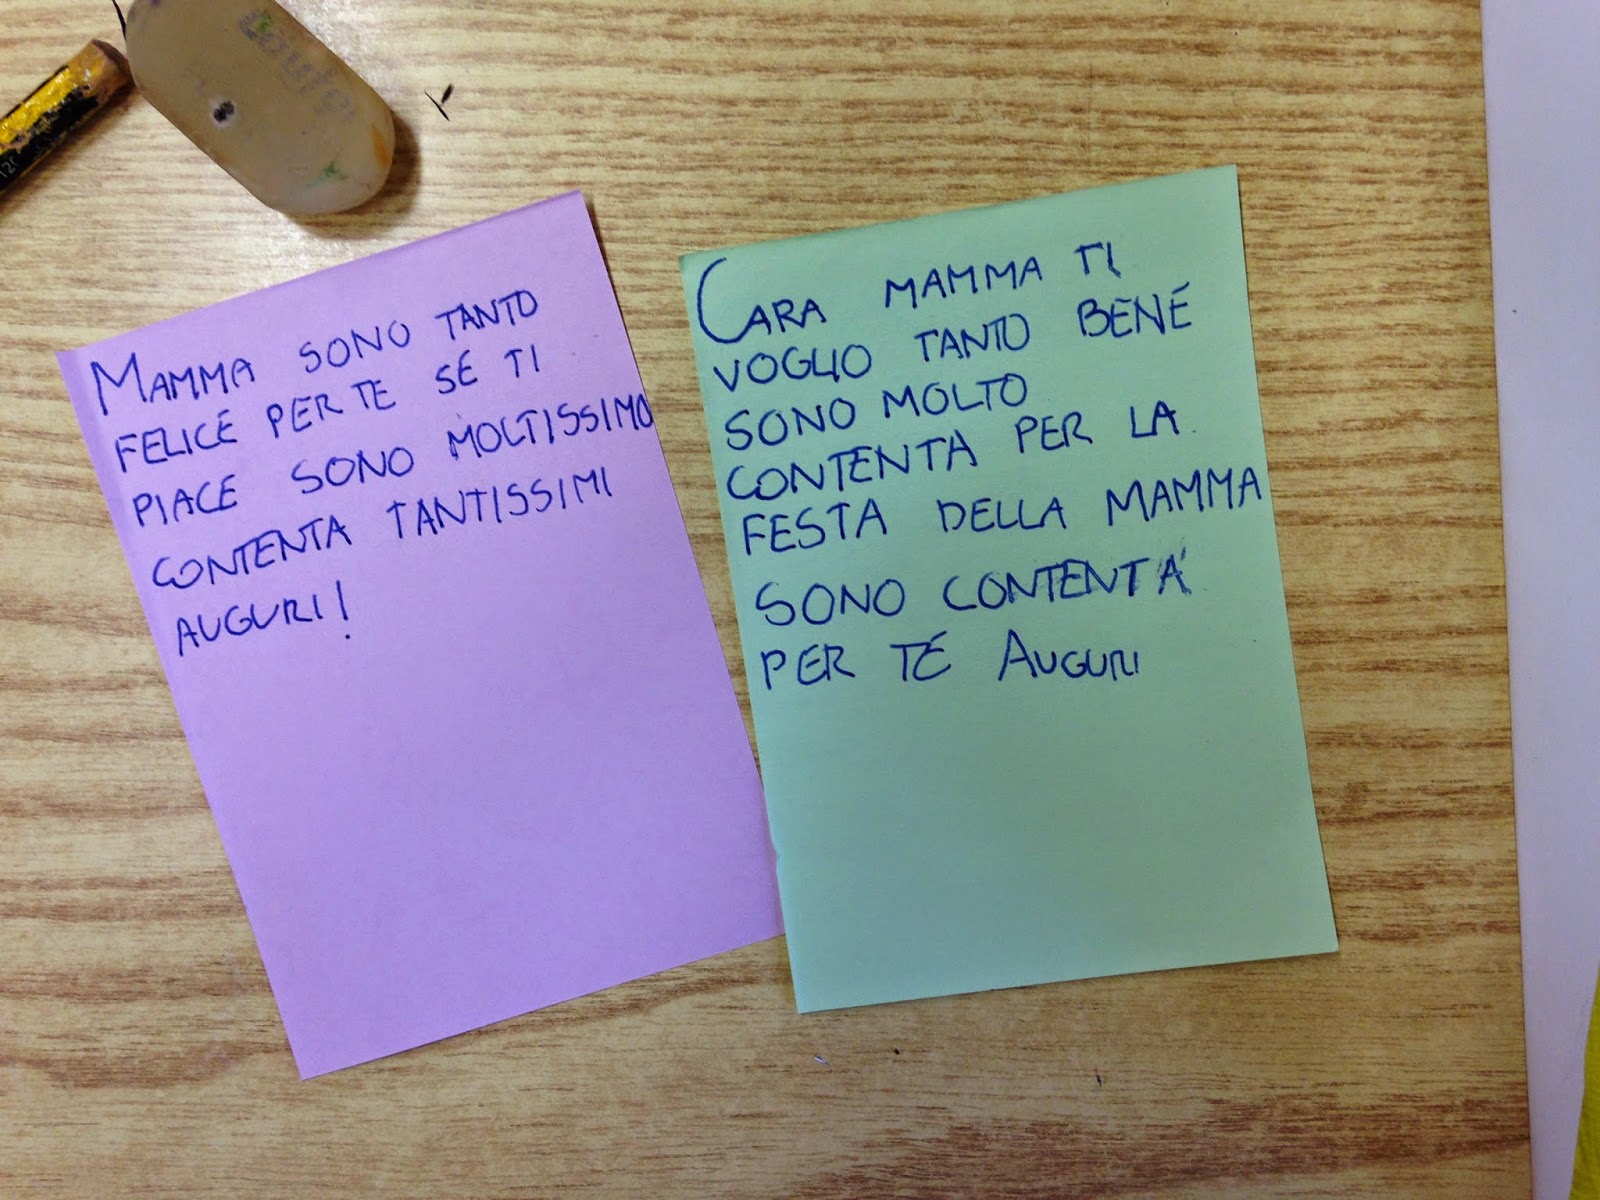 MAMMA SONO TANTO
FELICE PER TE SE TI
PIACE SONO MOLTISSIMO
CONTENTA TANTISSIMI
AUGURI!
CARA MAMMA TI
VOGLIO TANTO BENE
SONO MOLTO
CONTENTA PER LA
FESTA DELLA MAMMA
SONO CONTENTA
PER TÉ AUGURI